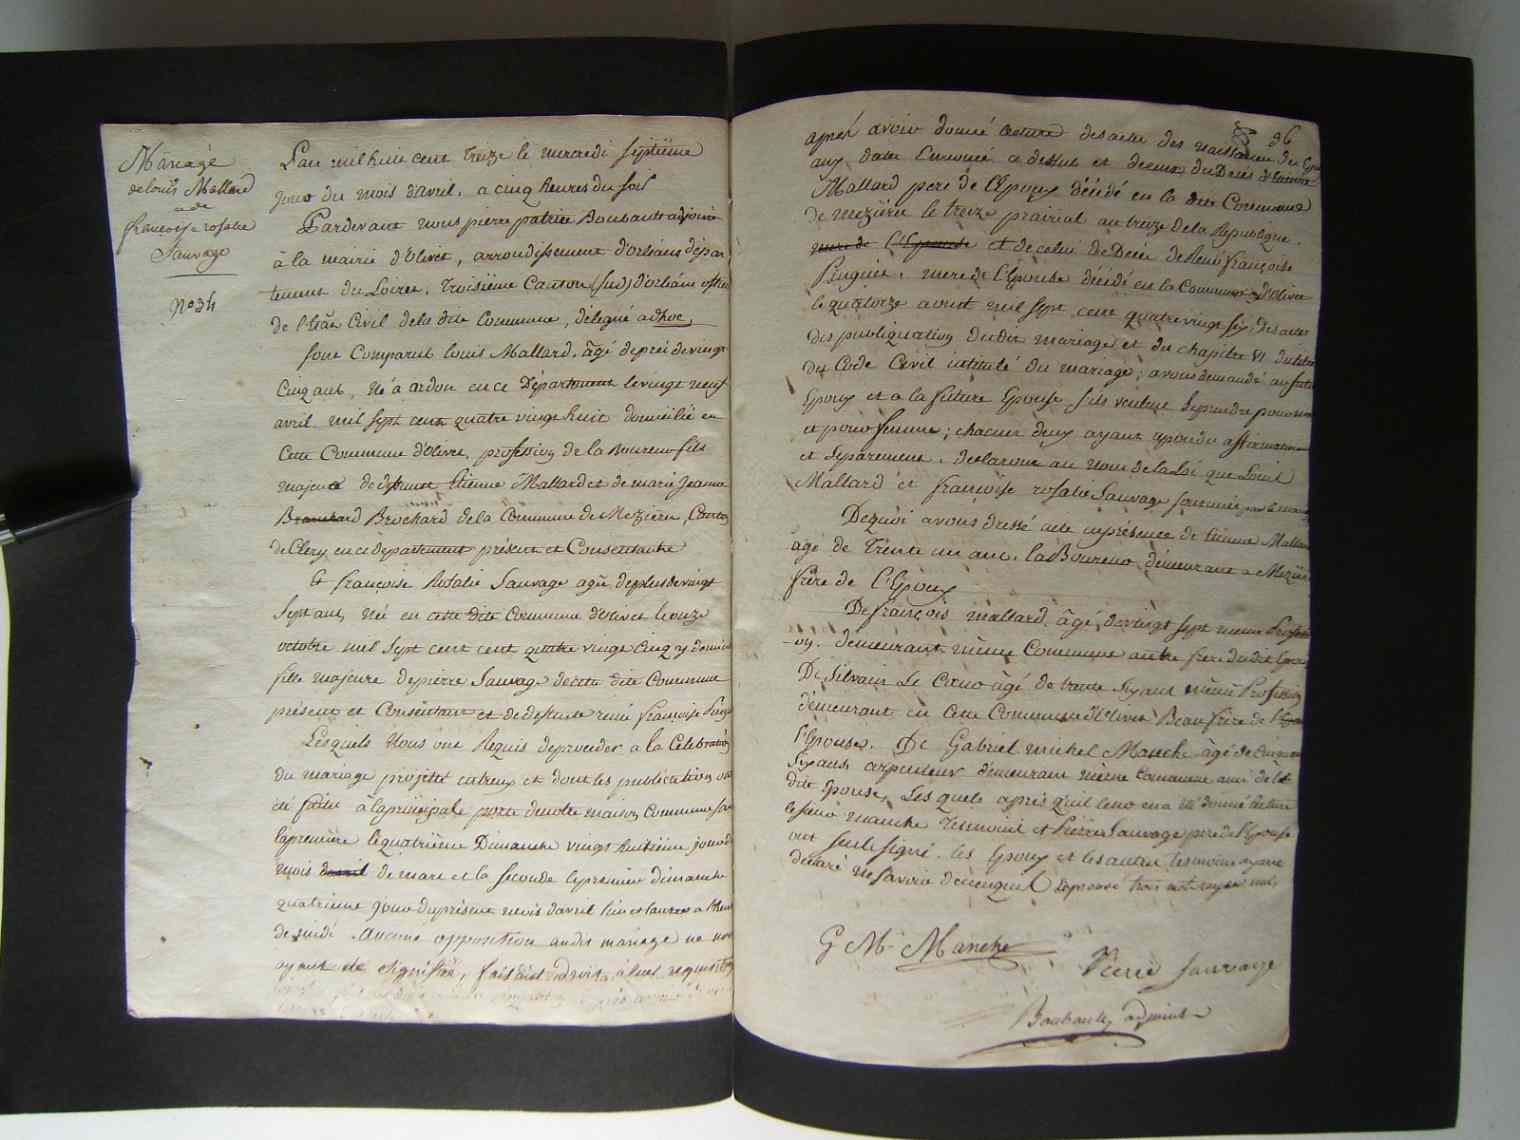 Mariage
de louis Mallard
et de
francoise rosalie
Sauvage
N° 34
L'an mil huit cent treize le mercredi septieme
jour du mois d'avril, a cinq heures du soir
Pardevant nous pierre patrice Boubault adjoint
à la mairie d'Olivet, arrondissement d'orleans depar
tement du Loiret, troisieme Canton (sud) d'orléans officier
de l'état Civil de la dite Commune, délégué adhoc
sont Comparus louis Mallard, âgé de près de vingt
Cinq ans, né à ardon en ce Département le vingt neuf
avril mil sept cent quatre vingt huit domicilié en
Cette Commune d'Olivet, profession de laboureur fils
majeur de defunt Etienne Mallard et de marie jeanne
Branchard Brochard de la Commune de Mezieres, Canton
de Clery en ce departement présente et Consentante
Et françoise Rosalie Sauvage agée de plus de vingt
sept ans, née en cette dite Commune d'Olivet le onze
octobre mil sept cent cent quatre vingt cinq y domiciliée
fille majeure de pierre Sauvage de cette dite Commune
présent et Consentant et de defunte reine françoise
Lesquels Nous ont Requis de proceder a la Celebration
du mariage projetté entreux et dont les publications ont
été faites à la principale porte de notre maison Commune
la premiere le quatrieme Dimanche vingt huitieme jour du
mois davril de mars et la seconde le premier dimanche
quatrieme jour du present mois d'avril l'un et l'autre a l'heure
de midi. Aucune opposition audit mariage ne nous
ayant été signifiée, faisant droit à leur requisition
36
après avoir donné lecture des actes des naissances des Epoux
aux dates Enoncé ci dessus et de ceux du Decès d'Etienne
Mallard pere de l'Epoux décédé en la dite Commune
de mezieres le treize prairial an treize de la Republique.
mere de l'Epouse et de celui de Decès de Reine françoise
mere de l'Epouse décédé en la Commune d'Olivet
le quatorze avril mil sept cent quatre vingt six, des actes
des publiquation dudit mariage et du chapitre VI du titre
du Code Civil intitulé du mariage; avons demandé au futur
Epoux et a la future Epouse s'ils veulent se prendre pour mari
et pour femme; chacun deux ayant repondu affirmativement
et separement, declarons au nom de la Loi que Louis
Mallard et françoise rosalie Sauvage sont unis par le mariage
De quoi avons dressé acte en présence de Etienne Mallard
agé de trente un ans, laBoureur demeurant a Mezieres
frère de l'Epoux
De françois mallard, âgé de vingt sept meme Professi
on, demeurant même Commune autre frere dudit Epoux
De Silvain Le Coeur âgé de trente six ans même Profession
demeurant en Cette Commune d'Olivet Beau frère de l'Epoux
l'Epouse. De Gabriel michel Manche âgé de cinquante
six ans, arpenteur demeurant même Commune ami de la
dite Epouse, Les quels après qu'il leur en a été donné lecture
le sieur manche temoin et Pierre Sauvage pere de l'Epouse
ont seuls signé, les Epoux et les autres temoins ayant
declaré ne savoir de ce enquis. approuvé trois mots rayés nuls
G M Manche
Pierre sauvage
Boubault, adjoint